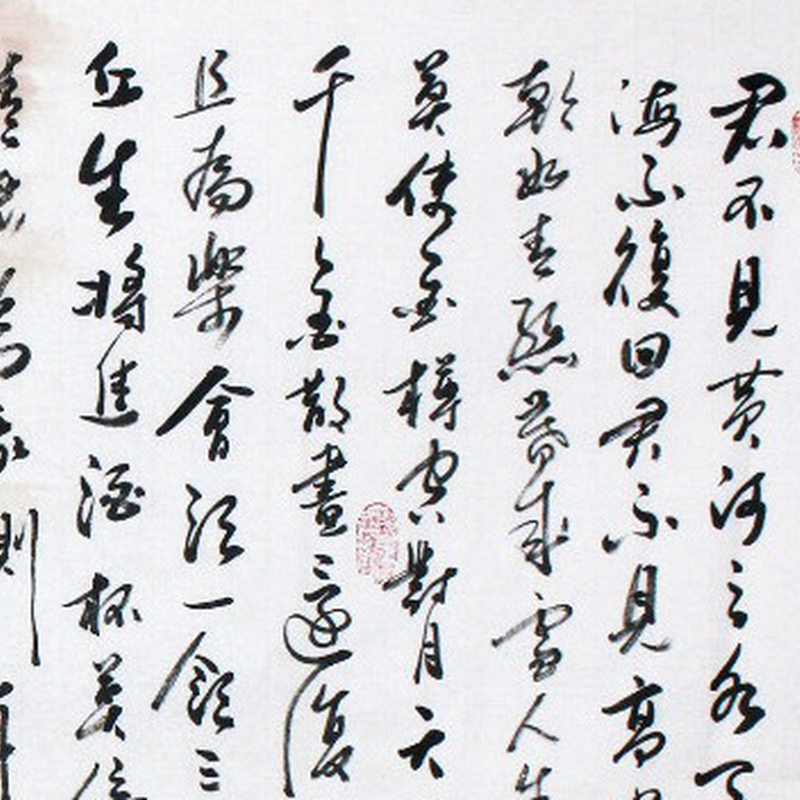 君不見黄河之水
海不復回君不見高
朝如青絲暮成雪人生
莫使金樽空對月天
千金散盡還復
且為樂會須一飲三
丘生將進酒杯莫停